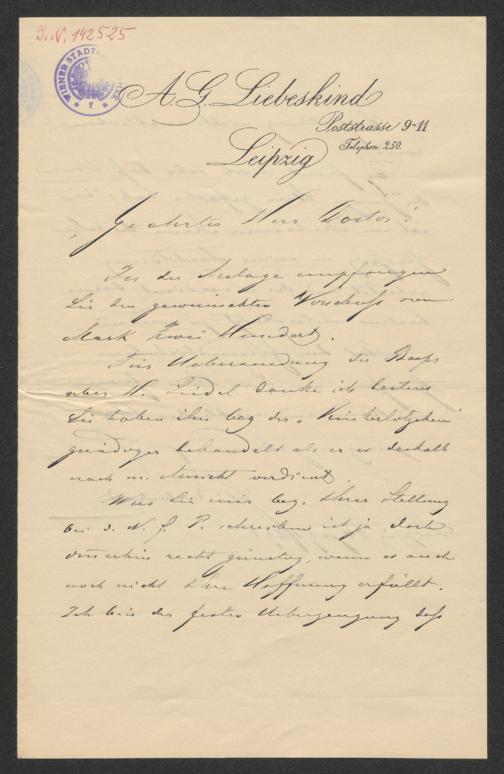 J. N. 142525
WIENER STADT
7
A. G. Liebeskind
Poststrasse 9-11
Telephon 250.
Leipzig
Geehrter Herr Doctor!
In der Anlage empfangen
Sie den gewünschten Vorschuss von
Mark Zwei Hundert.
Für Uebersendung des
über H. Seidel danke ich bestens
Sie haben ihn bez. der
gnädiger behandelt als er es deshalb
nach m. Ansicht verdient.
Was Sie mir bez. Ihrer Stellung
bei d. N. f. P. schreiben ist ja doch
immerhin recht günstig, wenn es auch
noch nicht Ihre Hoffnung erfüllt.
Ich bin der festen Ueberzeugung dass